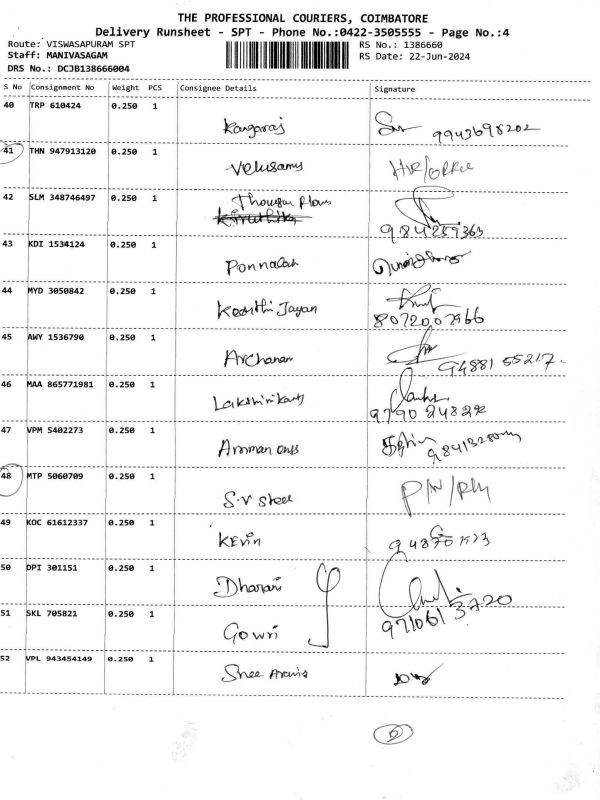 THE PROFESSIONAL COURIERS, COIMBATORE
Delivery Runsheet - SPT - Phone No.:0422-3505555 - Page No.:4
Route: VISWASAPURAM SPT RS No.: 1386660
Staff: MANIVASAGAM RS Date: 22-Jun-2024
DRS No.: DCJB138666004
S No Consignment No Weight PCS Consignee Details Signature
40 TRP 610424 0.250 1
Kangaraj 9943698202
41 THN 947913120 0.250 1
Velusamy
42 SLM 348746497 0.250 1
Kiruthika
43 KDI 1534124 0.250 1
Ponnalah
44 MYD 3050842 0.250 1
Keerthi Jayan
8072007966
45 AWY 1536790 0.250 1
Archanan 94881 55217.
46 MAA 865771981 0.250 1
Lakshmikanth
47 VPM 5402273 0.250 1
Amman
48 MTP 5060709 0.250 1
S.V Steel
49 KOC 61612337 0.250 1
Kevin
50 DPI 301151 0.250 1
Dharani
51 SKL 705821 0.250 1
Gowri 971061 3720
52 VPL 943454149 0.250 1
Shree